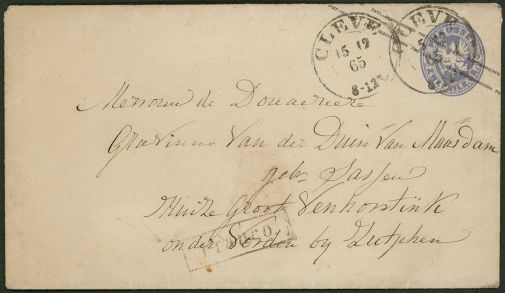 CLEVE
15 12
65
8-12
CLEVE
Mevrouw de Douairiere
Gravinne Van der Duin Van Maasdam
geb. Sassen
Huize Groot Venhorstink
onder Vorden by Zutphen
FRANCO